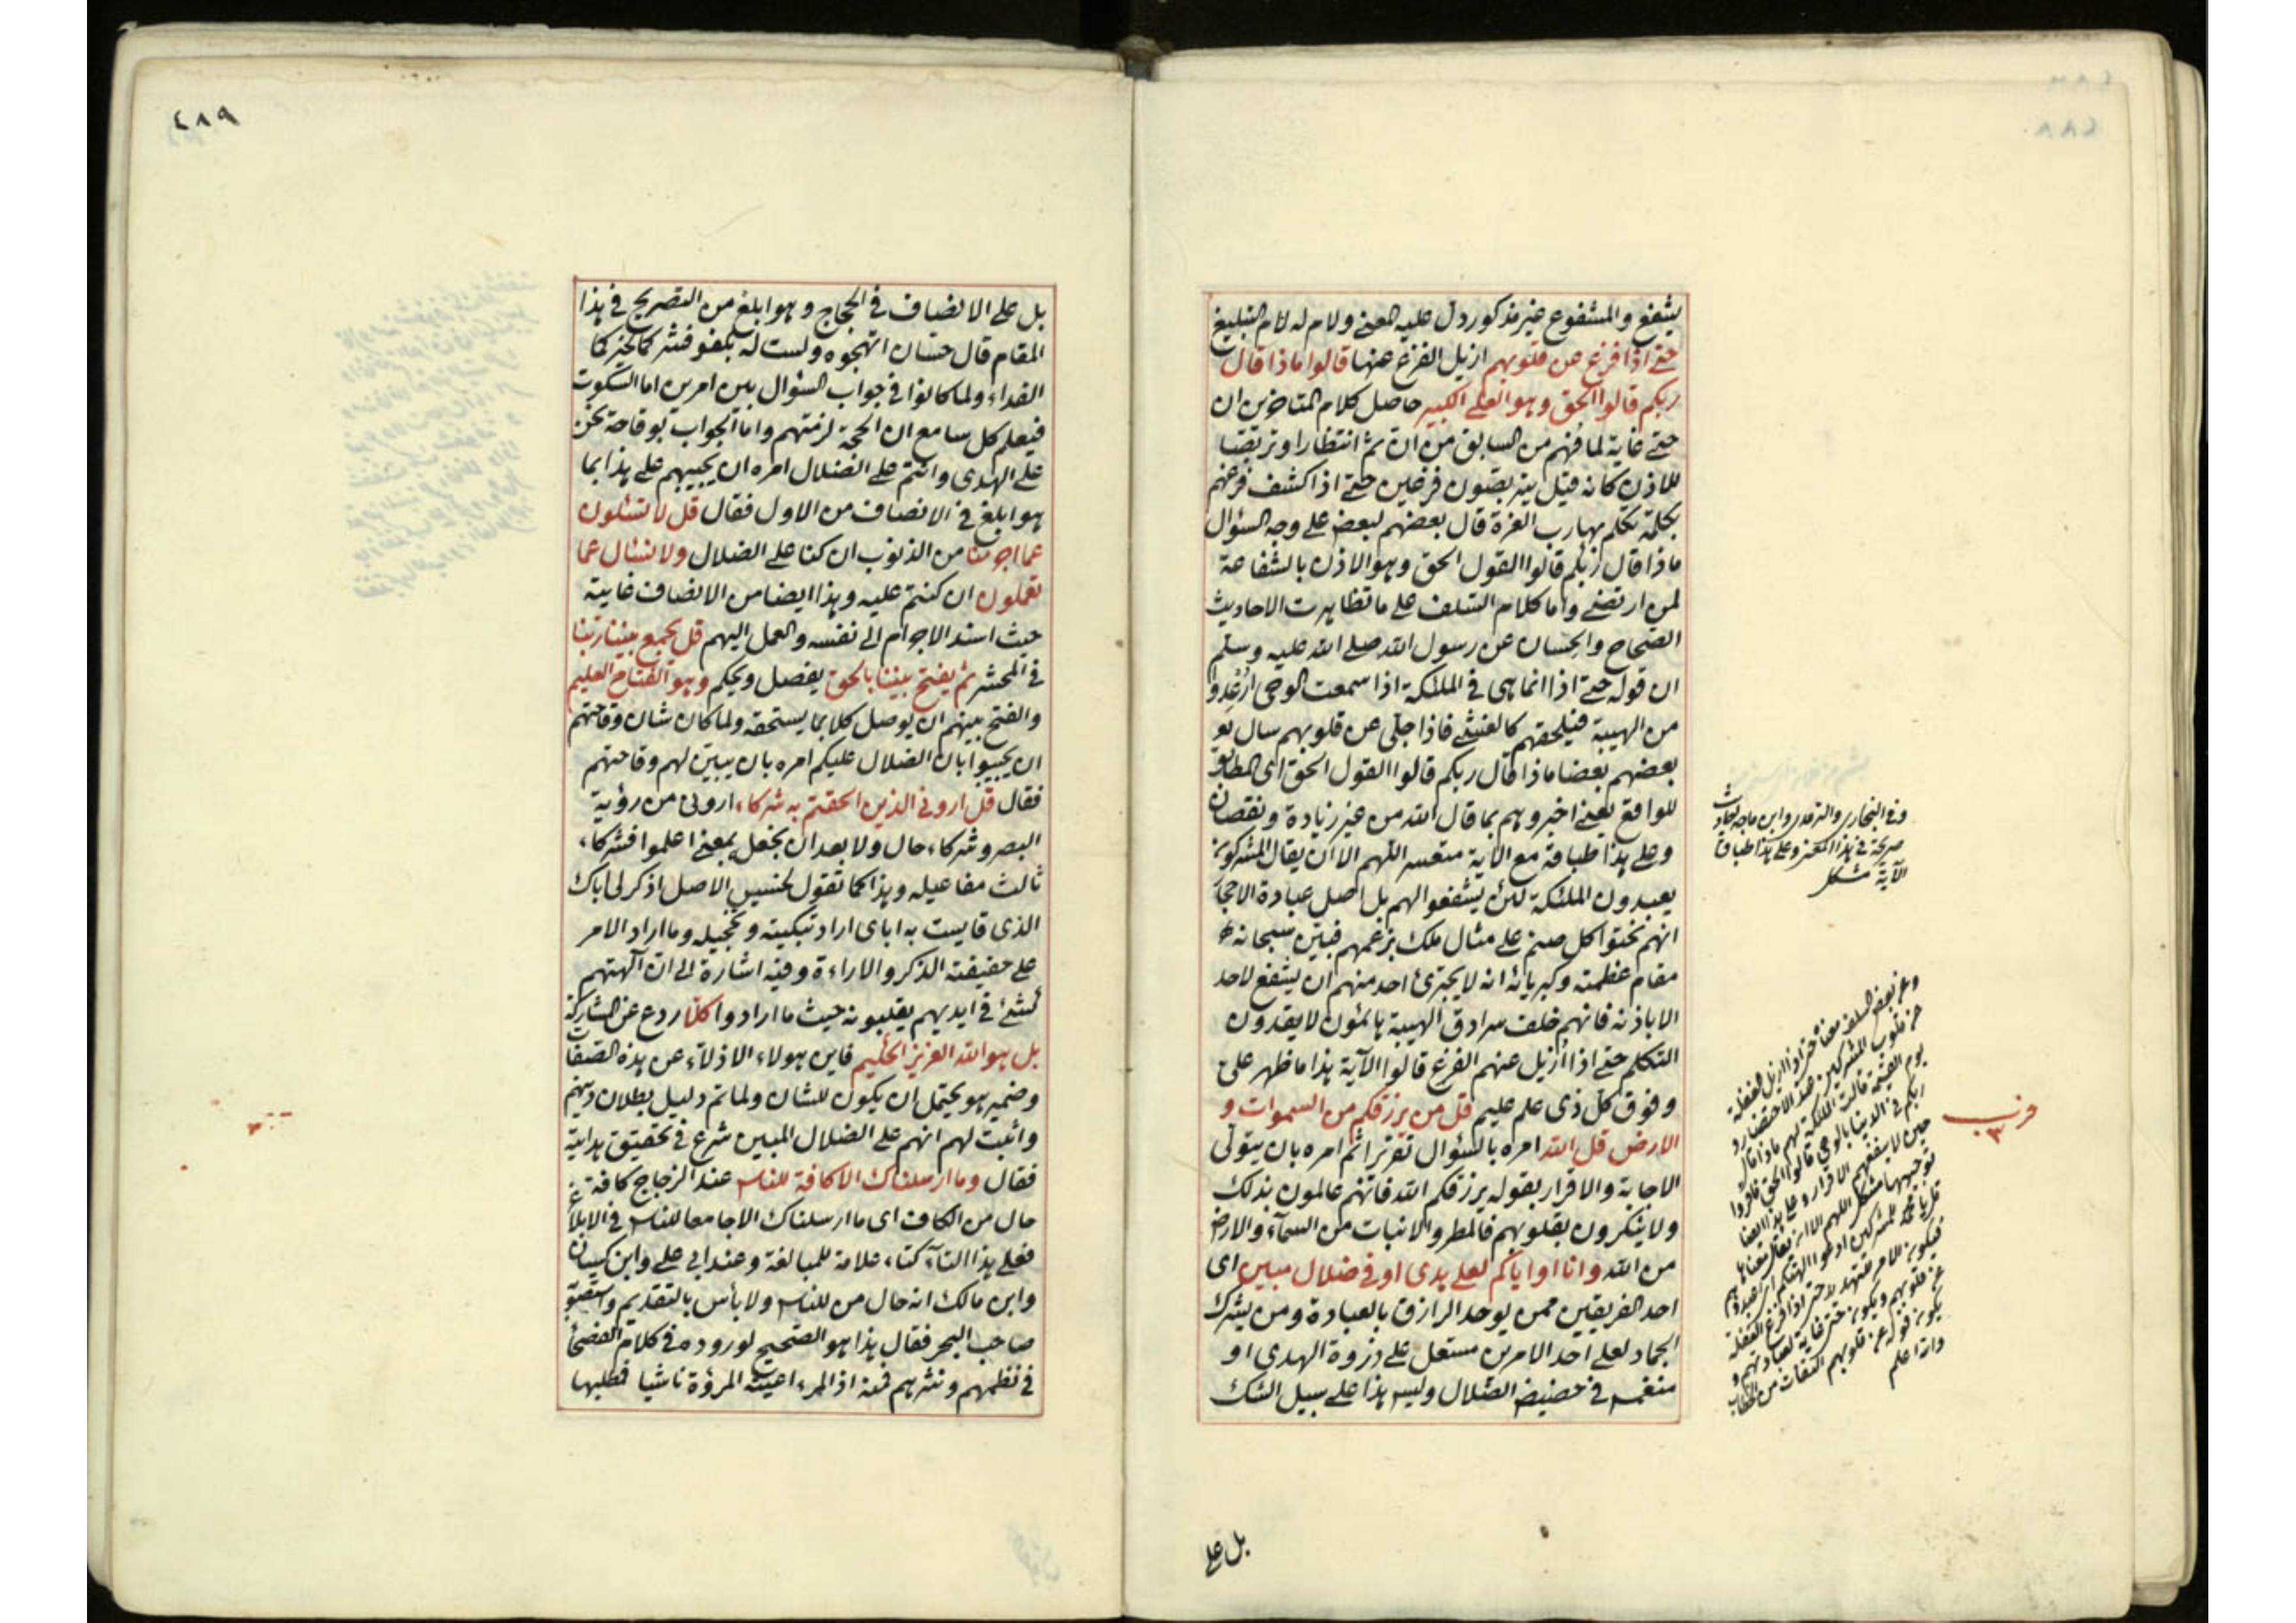 يشفع والمشفوع غير مذكور دل عليه المعنى ولام له لام التبليغ
حتى اذا فزع عن قلوبهم ازيل الفزع عنها قالوا ماذا قال
ربكم قالوا الحق وهو العلى الكبير حاصل كلام المتاخرين ان
حتى غاية لما فهم من السابق من ان ثم انتظارا وتربصا
للاذن كانه قيل يتربصون فزعين حتى اذا كشف فزعهم
بكلمة تكلم بها رب العزة قال بعضهم لبعض على وجه السؤال
ماذا قال ربكم قالوا القول الحق وهو الاذن بالشفاعة
لمن ارتضى واما كلام السلف على ما تظاهرت الاحاديث
الصحاح والحسان عن رسول الله صلى الله عليه وسلم
ان قوله حتى اذا انما هي في الملئكة اذا سمعت الوحي ارعدوا
من الهيبة فيلحقهم كالغشى فاذا جلى عن قلوبهم سال
بعضهم بعضا ماذا قال ربكم قالوا القول الحق اى المطابق
للواقع يعنى اخبروهم بما قال الله من غير زيادة ونقصان
وعلى هذا طباقه مع الآية متعسر اللهم الا ان يقال المشركون
يعبدون الملئكة لئن يشفعوا لهم بل اصل عبادة الاحجار
انهم نحتوا كل صنم على مثال ملك بزعمهم فبين سبحانه
مقام عظمته وكبريائه انه لا يجترئ احد منهم ان يشفع لاحد
الا باذنه فانهم خلف سرادق الهيبة هائمون لا يقدرون
التكلم حتى اذا ازيل عنهم الفزع قالوا الآية هذا ما ظهر على
وفوق كل ذى علم عليم قل من يرزقكم من السموات و
الارض قل الله امره بالسؤال تقريرا ثم امره بان يتولى
الاجابة والاقرار بقوله يرزقكم الله فانهم عالمون بذلك
ولا ينكرون بقلوبهم فالمطر والانبات من السمآء والارض
من الله وانا او اياكم لعلى هدى او في ضلال مبين اى
احد الفريقين ممن يوحد الرازق بالعبادة ومن يشرك
الجماد لعلى احد الامرين مستعل على ذروة الهدى او
منغمس في حضيض الضلال وليس هذا على سبيل الشك
بل على
وفى البخارى والترمذى وابن ماجه احاديث
صريحة في هذا المعنى وعلى هذا طباق
الآية مشكل
وعن بعض السلف معناه حتى اذا ازيل الغفلة
عن قلوب المشركين عند الاحتضار و
يوم القيمة قالت الملئكة لهم ماذا قال
ربكم في الدنيا بالوحي قالوا الحق فاقروا
حين لا ينفعهم الاقرار وعلى هذا ايضا
والله اعلم
٤٨٨
٤٨٩
بل على الانصاف في الحجاج وهو ابلغ من التصريح في هذا
المقام قال حسان اتهجوه ولست له بكفو فشركما لخيركما
الفداء ولما كانوا في جواب السؤال بين امرين اما السكوت
فيعلم كل سامع ان الحجة لزمتهم واما الجواب بوقاحة نحن
على الهدى وانتم على الضلال امره ان يجيبهم على هذا بما
هو ابلغ في الانصاف من الاول فقال قل لا تسئلون
عما اجرمنا من الذنوب ان كنا على الضلال ولا نسئل عما
تعملون ان كنتم عليه وهذا ايضا من الانصاف غايته
حيث اسند الاجرام الى نفسه والعمل اليهم قل يجمع بيننا ربنا
في المحشر ثم يفتح بيننا بالحق يفصل ويحكم وهو الفتاح العليم
والفتح بينهم ان يوصل كلا بما يستحقه ولما كان شان وقاحتهم
ان يجيبوا بان الضلال عليكم امره بان يبين لهم وقاحتهم
فقال قل اروني الذين الحقتم به شركاء اروني من رؤية
البصر وشركاء حال ولا بعد ان يجعل بمعنى اعلموا فشركاء
ثالث مفاعيله وهذا كما تقول لخسيس الاصل اذكر لى اباك
الذى قايست به اباى اراد تبكيته وتخجيله وما اراد الامر
على حقيقته الذكر والاراءة وفيه اشارة الى ان آلهتهم
كشئ في ايديهم يقلبونه حيث ما ارادوا كلا ردع عن المشاركة
بل هو الله العزيز الحكيم فاين هولاء الاذلاء عن هذه الصفات
وضمير هو يحتمل ان يكون للشان ولما تم دليل بطلان دينهم
واثبت لهم انهم على الضلال المبين شرع في تحقيق هداية
فقال وما ارسلناك الا كافة للناس عند الزجاج كافة
حال من الكاف اى ما ارسلناك الا جامعا للناس في الابلاغ
فعلى هذا التآء كتاء علامة للمبالغة وعند ابي على وابن كيسان
وابن مالك انه حال من للناس ولا بأس بالتقديم واستصوبه
صاحب البحر فقال هذا هو الصحيح لوروده في كلام الفصحاء
في نظمهم ونثرهم فمنه اذا المرء اعيته المروة ناشيا فمطلبها